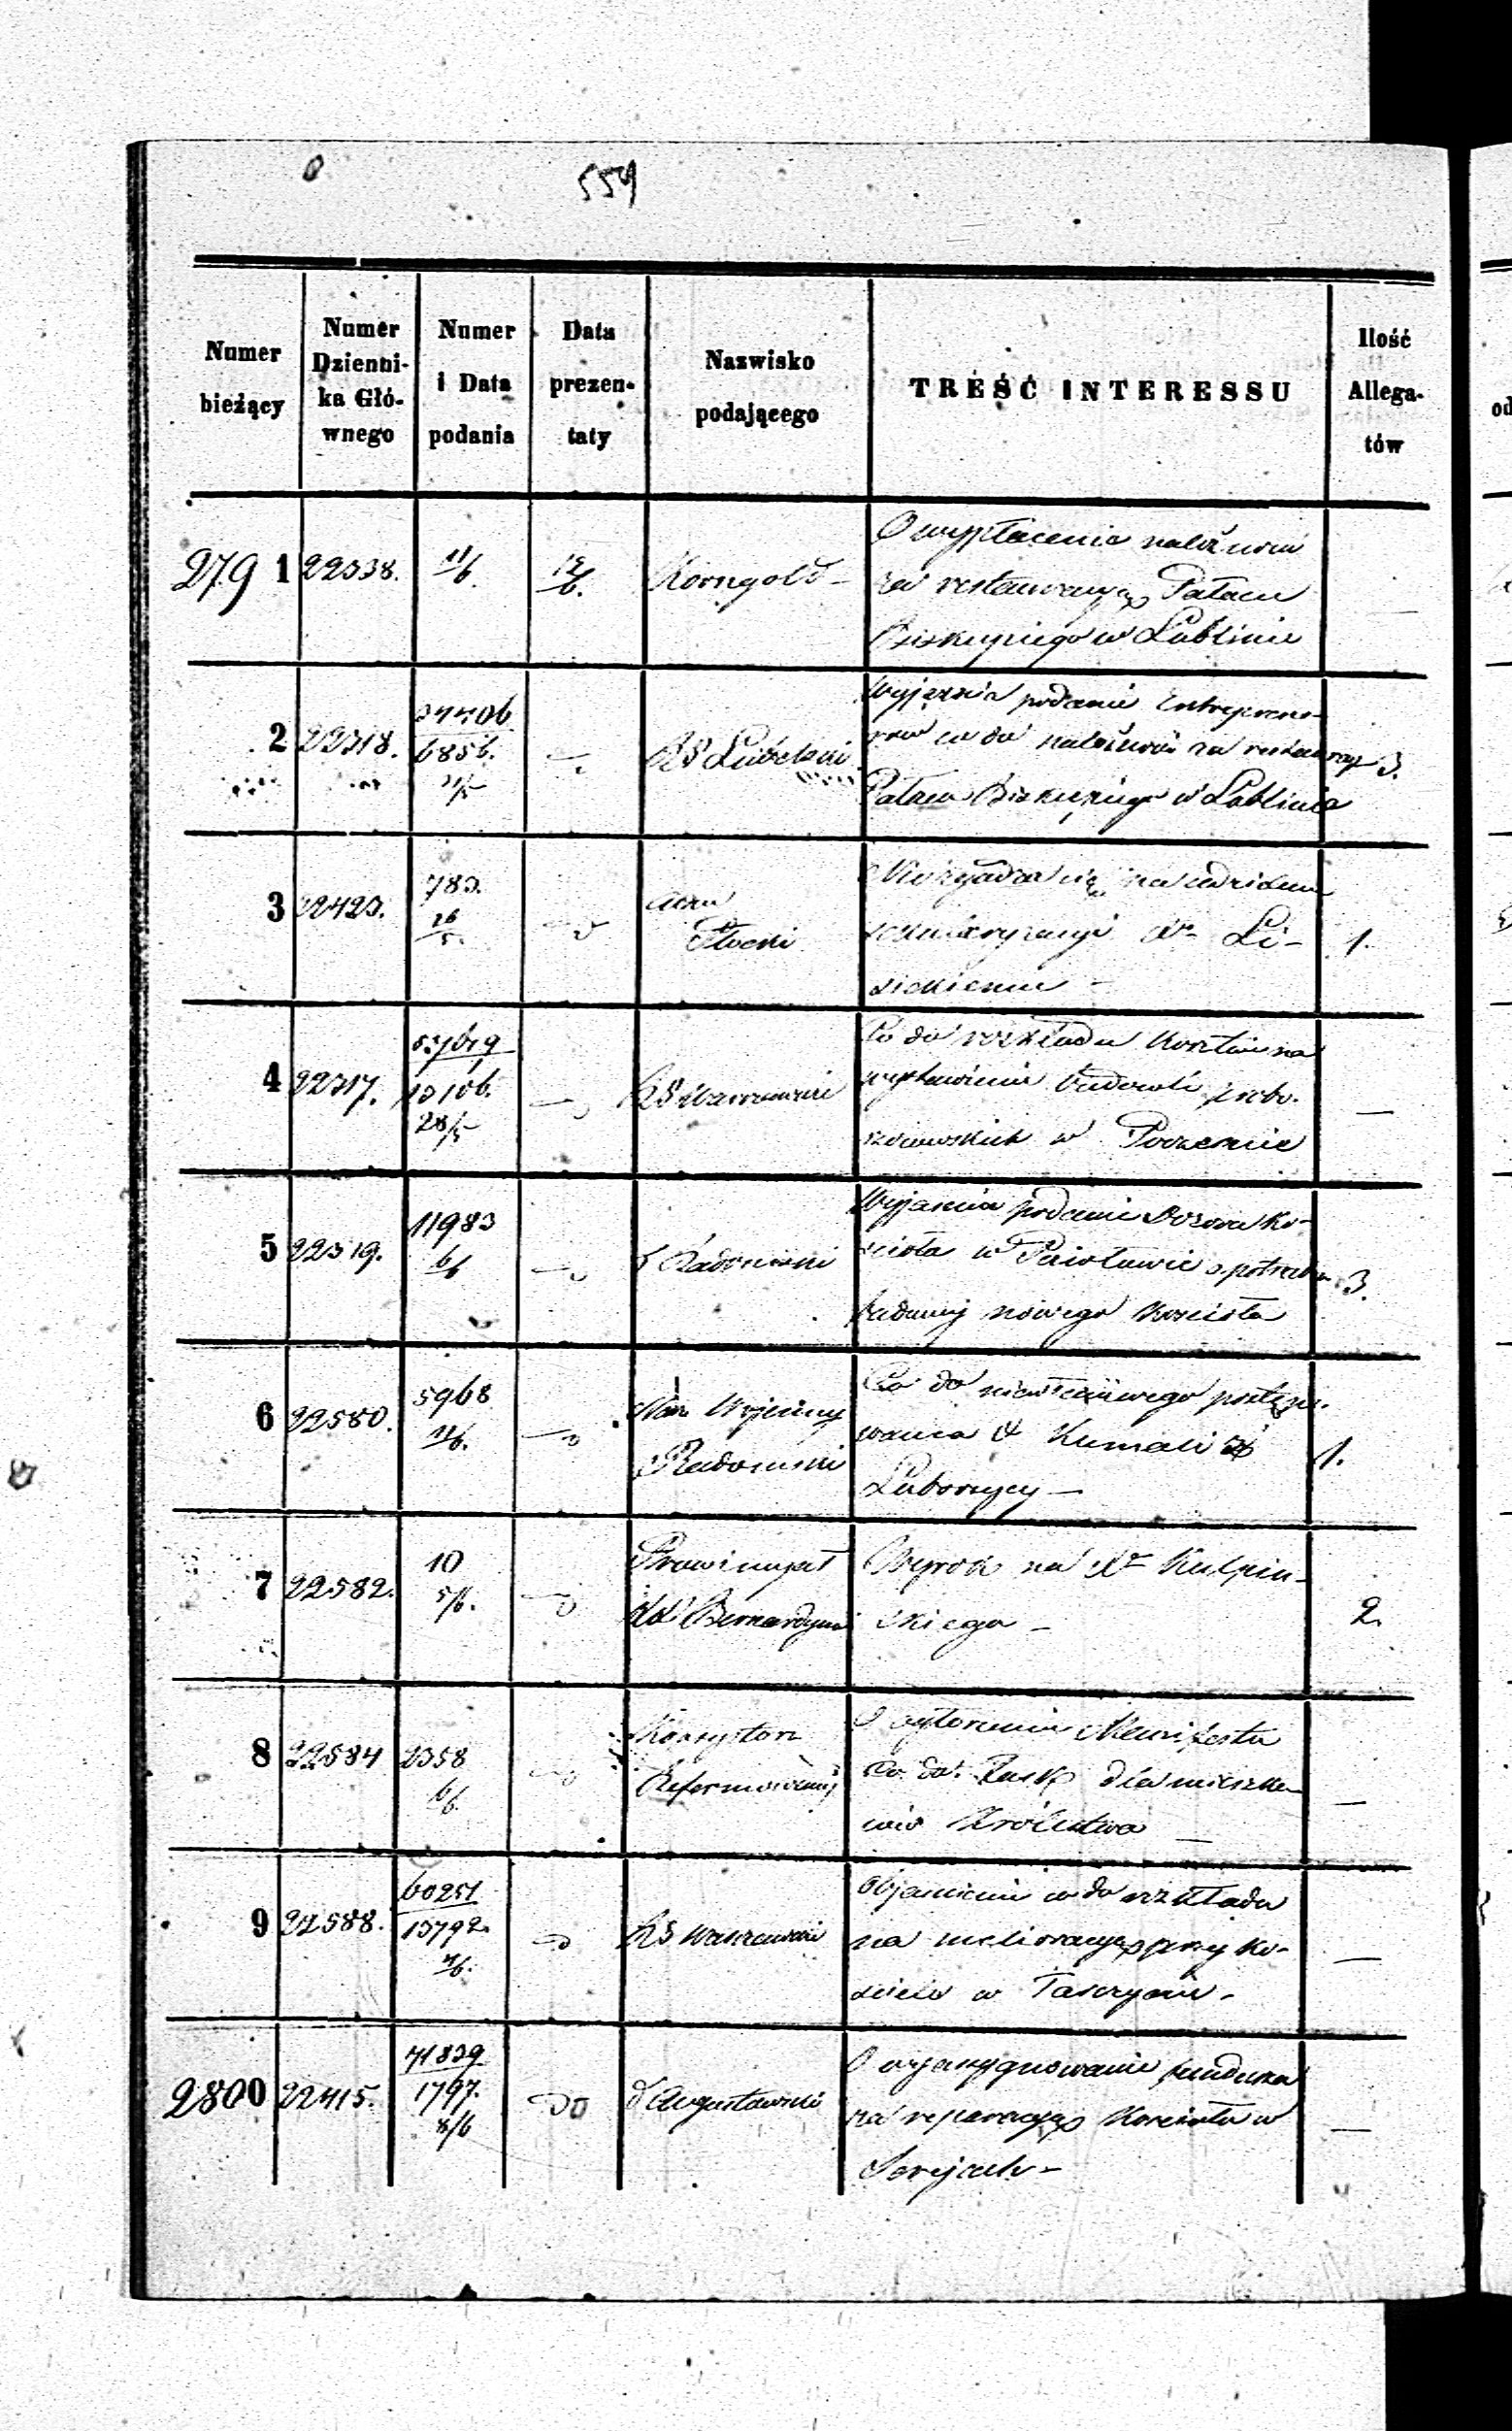 554
Numer bieżący
Numer Dzienni-ka Głó-wnego
Numer i Data podania
Data prezen-taty
Nazwisko podającego
TREŚĆ INTERESSU
Ilość Allega-tów
2791 22538. 11/6. 12/6. Korngold -
O wypłacenie należności
za restauracyą Pałacu
Biskupiego w Lublinie
2 22318. 6856. RG Lubelski 3.
Wyjaśnia podanie Entrepreno-
rów co do należności za restauracyą
Pałacu Biskupiego w Lublinie
3 22423. 783. 26/5. Płocki 1.
Nie zgadza się na udzielenie
4 22317. 13106. 28/5 RG Warszawski —
Co do rozkładu kosztów na
wystawienie budowli probo-
szczowskich w
5 22319. 11983 6/6 d Radomski 3.
Wyjaśnia podanie Dozoru Ko-
ścioła w Pawłowie o potrzebie
budowy nowego kościoła
6 22580. 5968 11/6. Nacz Wojenny Radomski 1.
Co do niewłaściwego postępo-
wania X
Luborzycy —
7 22582. 10 5/6. Prowincyał XX Bernardynów 2.
Wyrok na Xa Kulpiń-
skiego -
8 22584 2358 6/6. Konsystorz Reformowany —
Manifestu
co do łask dla mieszkań-
ców Królestwa —
9 22588. 60251 13792. RG Warszawski —
Objaśnienie co do rozkładu
na melioracye przy ko-
ściele w
2800 22415. 71839 1797. 8/6 do d Augustowski —
O wyasygnowanie funduszu
na reparacyą Kościoła w
Serejach -